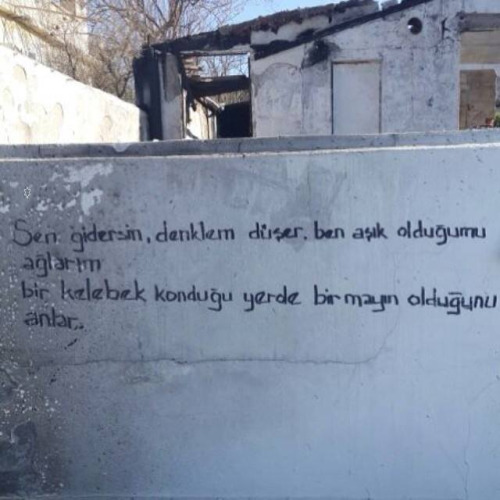 Sen gidersin, denklem düşer, ben aşık olduğumu
ağlarım
bir kelebek konduğu yerde bir mayın olduğunu
anlar.